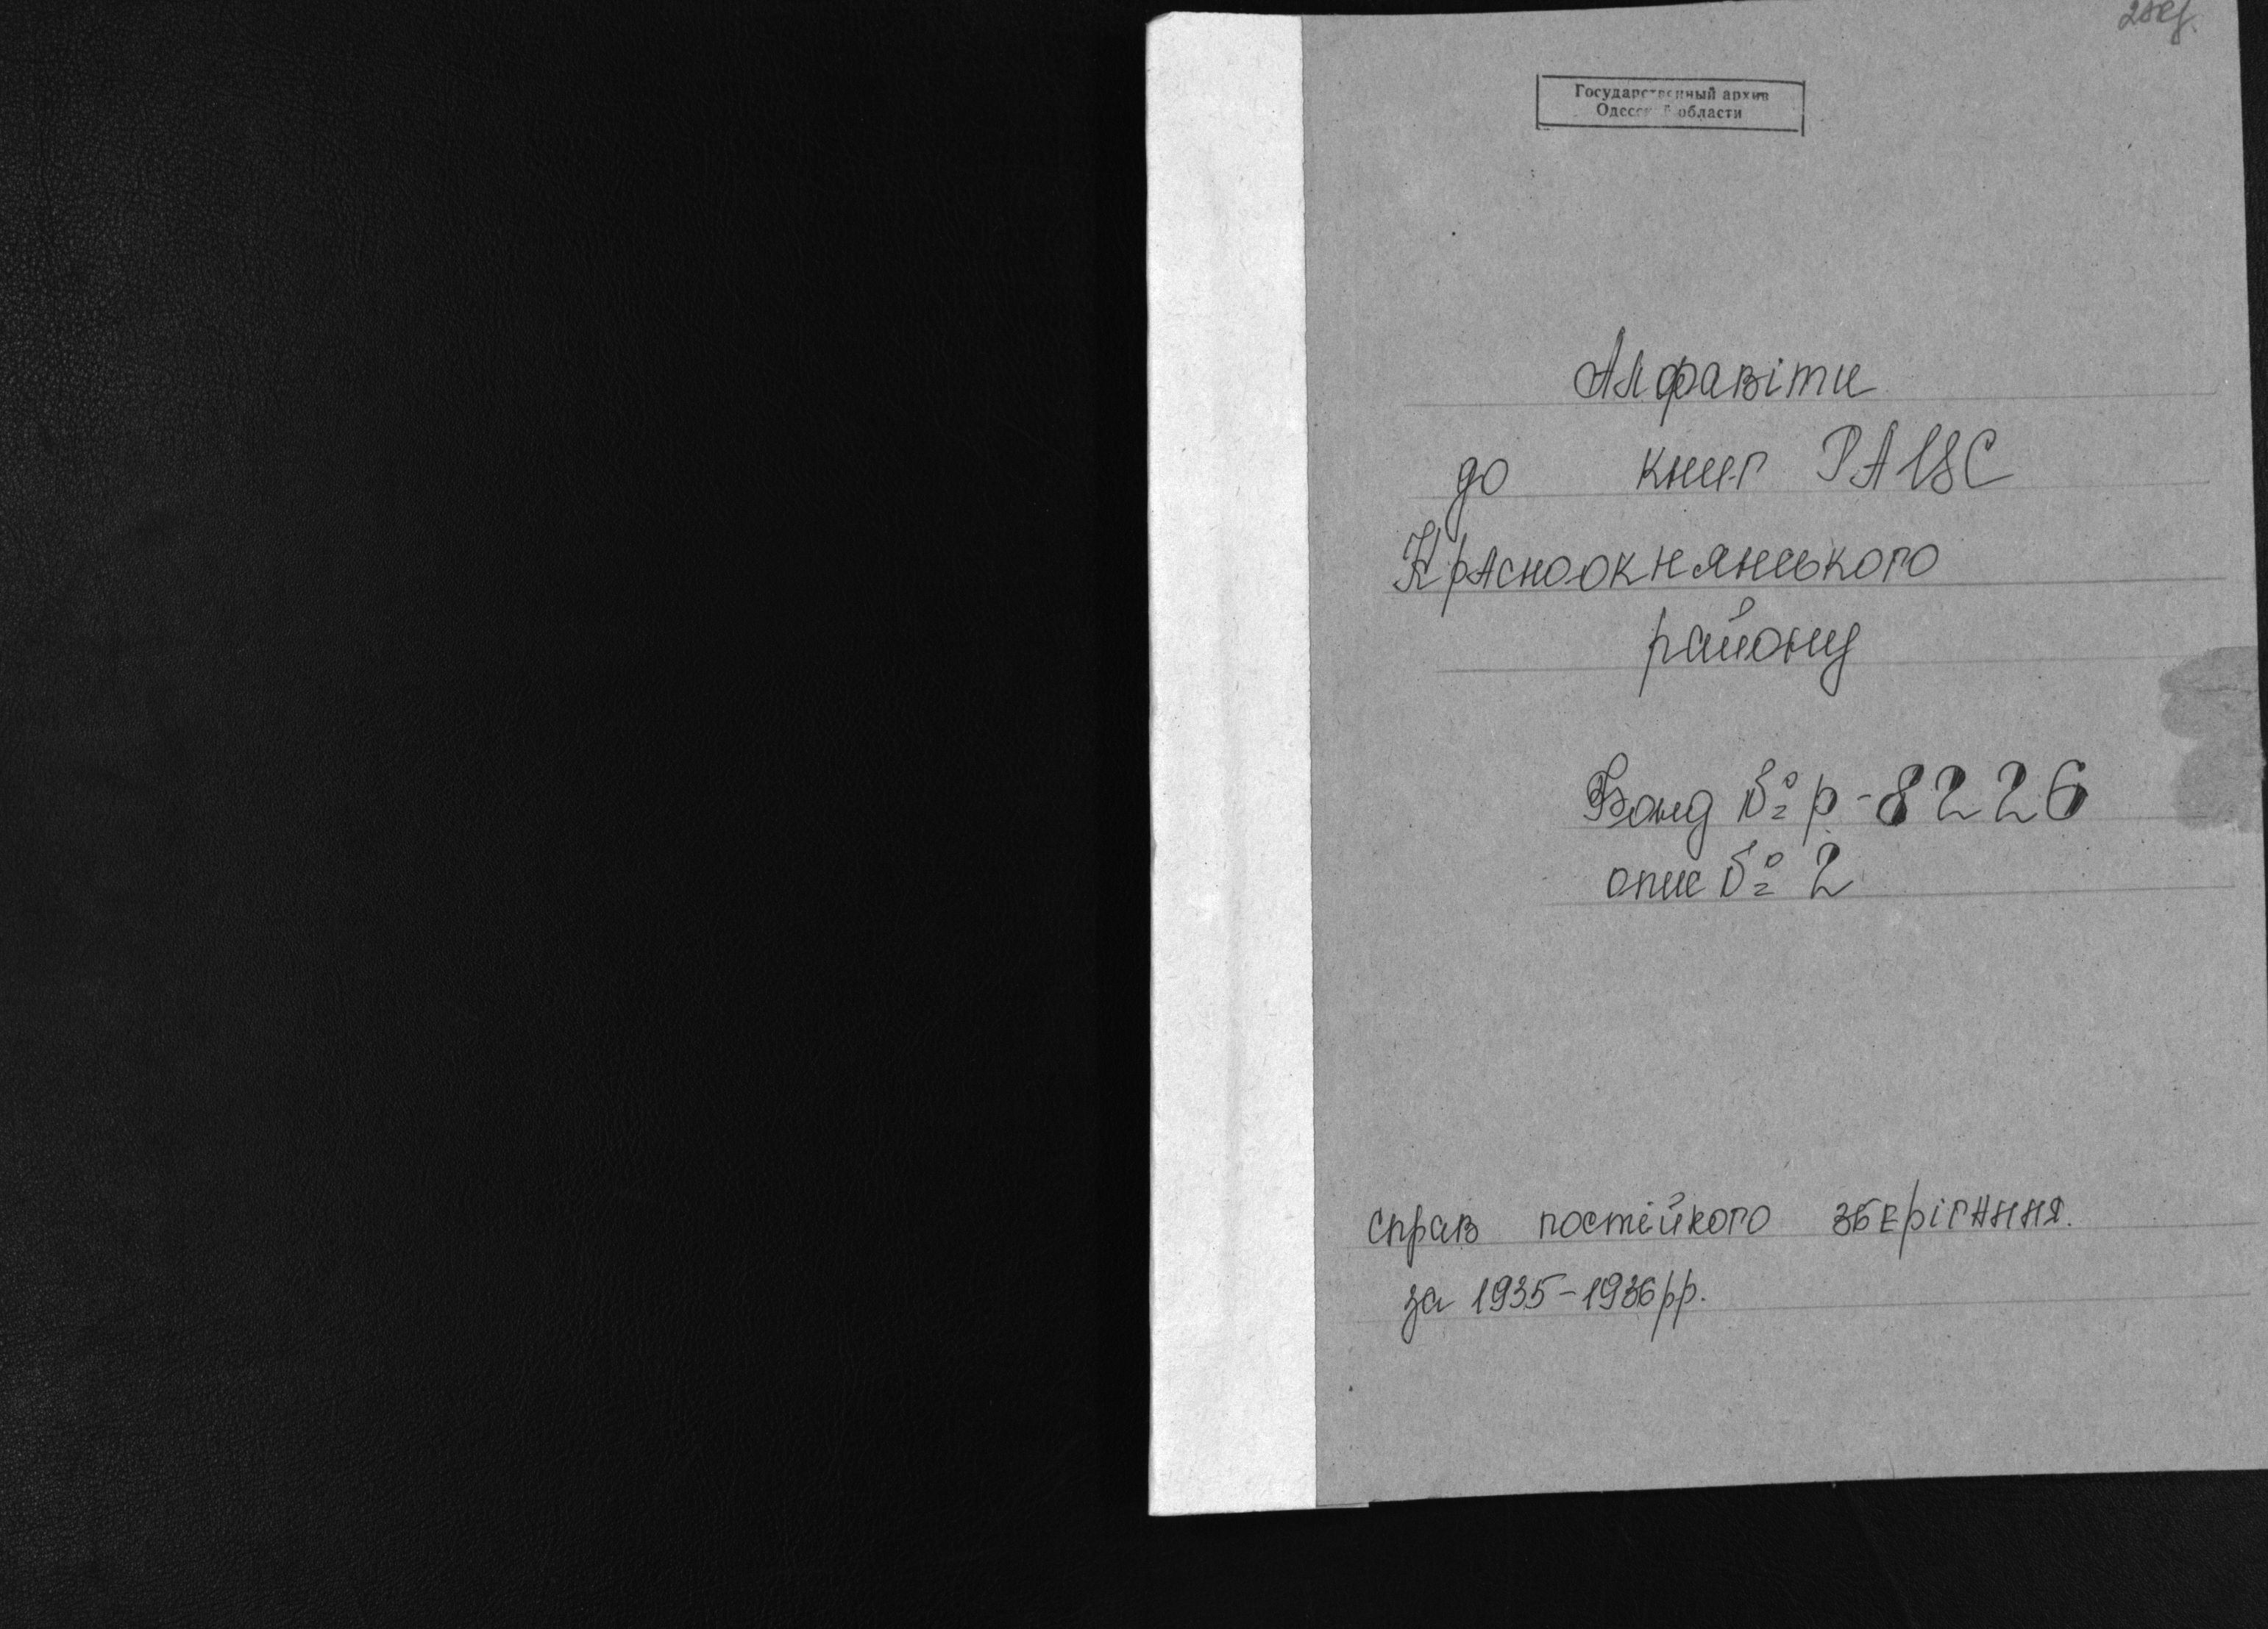 2 экз.
Государственный архив
Одесской области
Алфавіти
до книг РАЦС
Красноокнянського
району
Фонд № р-8226
опис № 2
справ постійного зберігання.
за 1935-1936 рр.